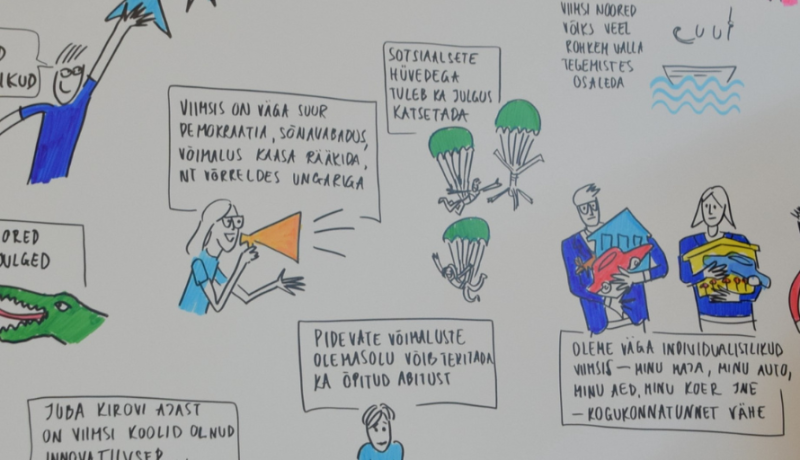 VIIMSI NOORED
VÕIKS VEEL
ROHKEM VALLA
TEGEMISTES
OSALEDA
IKUD
SOTSIAALSETE
HÜVEDEGA
TULEB KA JULGUS
KATSETADA
VIIMSIS ON VÄGA SUUR
DEMOKRAATIA, SÕNAVABADUS,
VÕIMALUS KAASA RÄÄKIDA,
NT VÕRRELDES UNGARIGA
OORED
JULGED
PIDEVATE VÕIMALUSTE
OLEMASOLU VÕIB TEKITADA
KA ÕPITUD ABITUST
OLEME VÄGA INDIVIDUALISTLIKUD
VIIMSIS – MINU MAJA, MINU AUTO,
MINU AED, MINU KOER JNE
– KOGUKONNATUNNET VÄHE
JUBA KIROVI AJAST
ON VIIMSI KOOLID OLNUD
INNOVATIIVSED